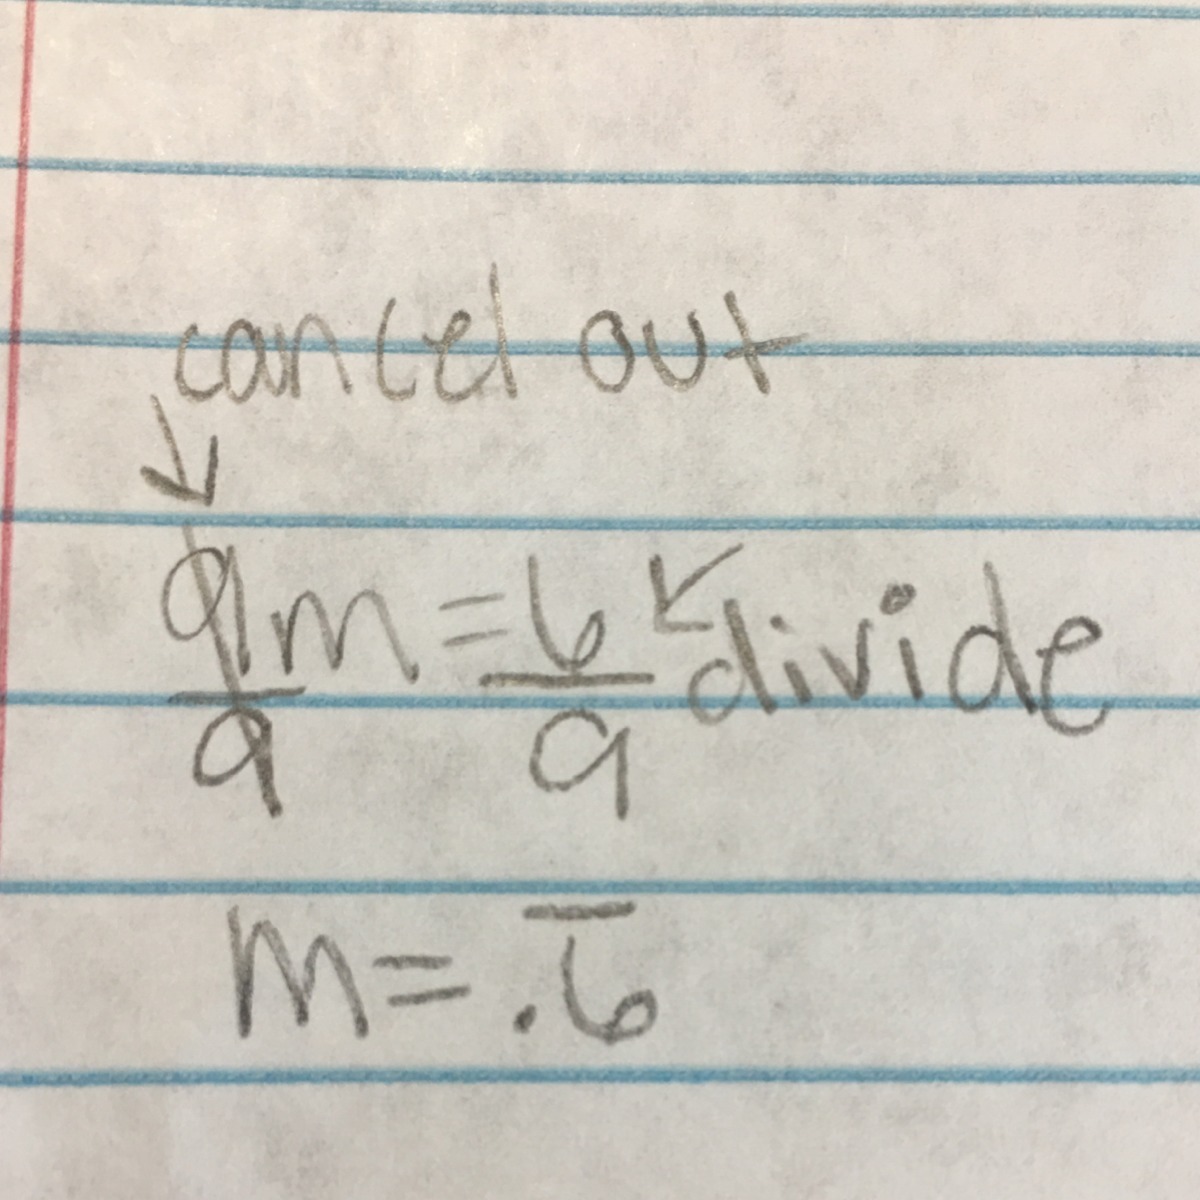 cancel out
↓
9m = 6 ↙ divide
9 9
m = .6̅